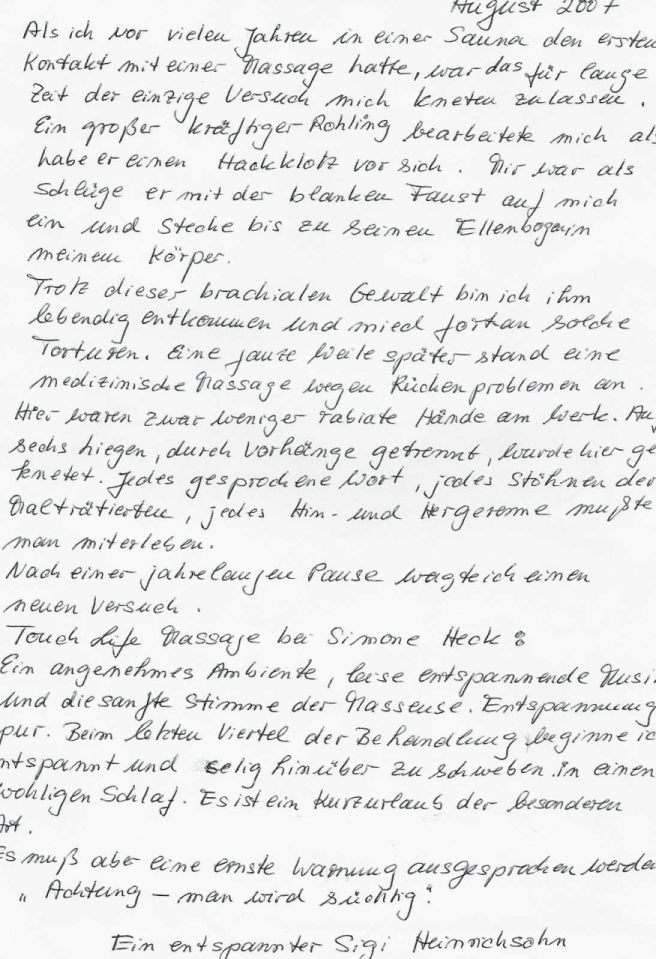 August 2007
Als ich vor vielen Jahren in einer Sauna den ersten
Kontakt mit einer Massage hatte, war das für lange
Zeit der einzige Versuch mich kneten zulassen.
Ein großer kräftiger Rohling bearbeitete mich als
habe er einen Hackklotz vor sich. Mir war als
schlüge er mit der blanken Faust auf mich
ein und stecke bis zu seinen Ellenbogen in
meinem Körper.
Trotz dieser brachialen Gewalt bin ich ihm
lebendig entkommen und mied fortan solche
Torturen. Eine ganze Weile später stand eine
medizinische Massage wegen Rückenproblemen an.
Hier waren zwar weniger rabiate Hände am Werk. Auf
sechs Liegen, durch Vorhänge getrennt, wurde hier ge
knetet. Jedes gesprochene Wort, jedes Stöhnen der
Malträtierten, jedes Hin- und Hergerenne mußte
man miterleben.
Nach einer jahrelangen Pause wagte ich einen
neuen Versuch.
Touch Life Massage bei Simone Heck:
Ein angenehmes Ambiente, leise entspannende Musik
und die sanfte Stimme der Masseuse. Entspannung
pur. Beim letzten Viertel der Behandlung beginne ich
entspannt und selig hinüber zu schweben in einen
wohligen Schlaf. Es ist ein Kurzurlaub der besonderen
Art.
Es muß aber eine ernste Warnung ausgesprochen werden
„Achtung – man wird süchtig".
Ein entspannter Sigi Heinrichsohn